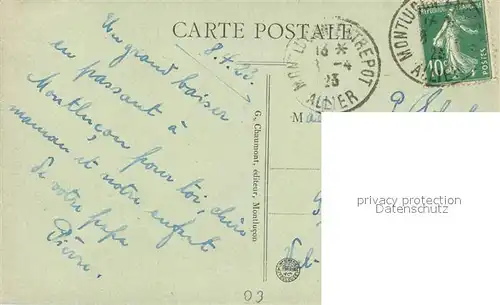 CARTE POSTALE
8.4.23
Un grand baiser
en passant à
Montluçon pour toi, chère
maman et notre enfant
de votre papa
Pierre.
G. Chaumont, éditeur, Montluçon
MONTLUÇON-ENTREPOT
13 *
-4
23
ALLIER
MONTLUÇON
10c
POSTES
privacy protection
Datenschutz
03